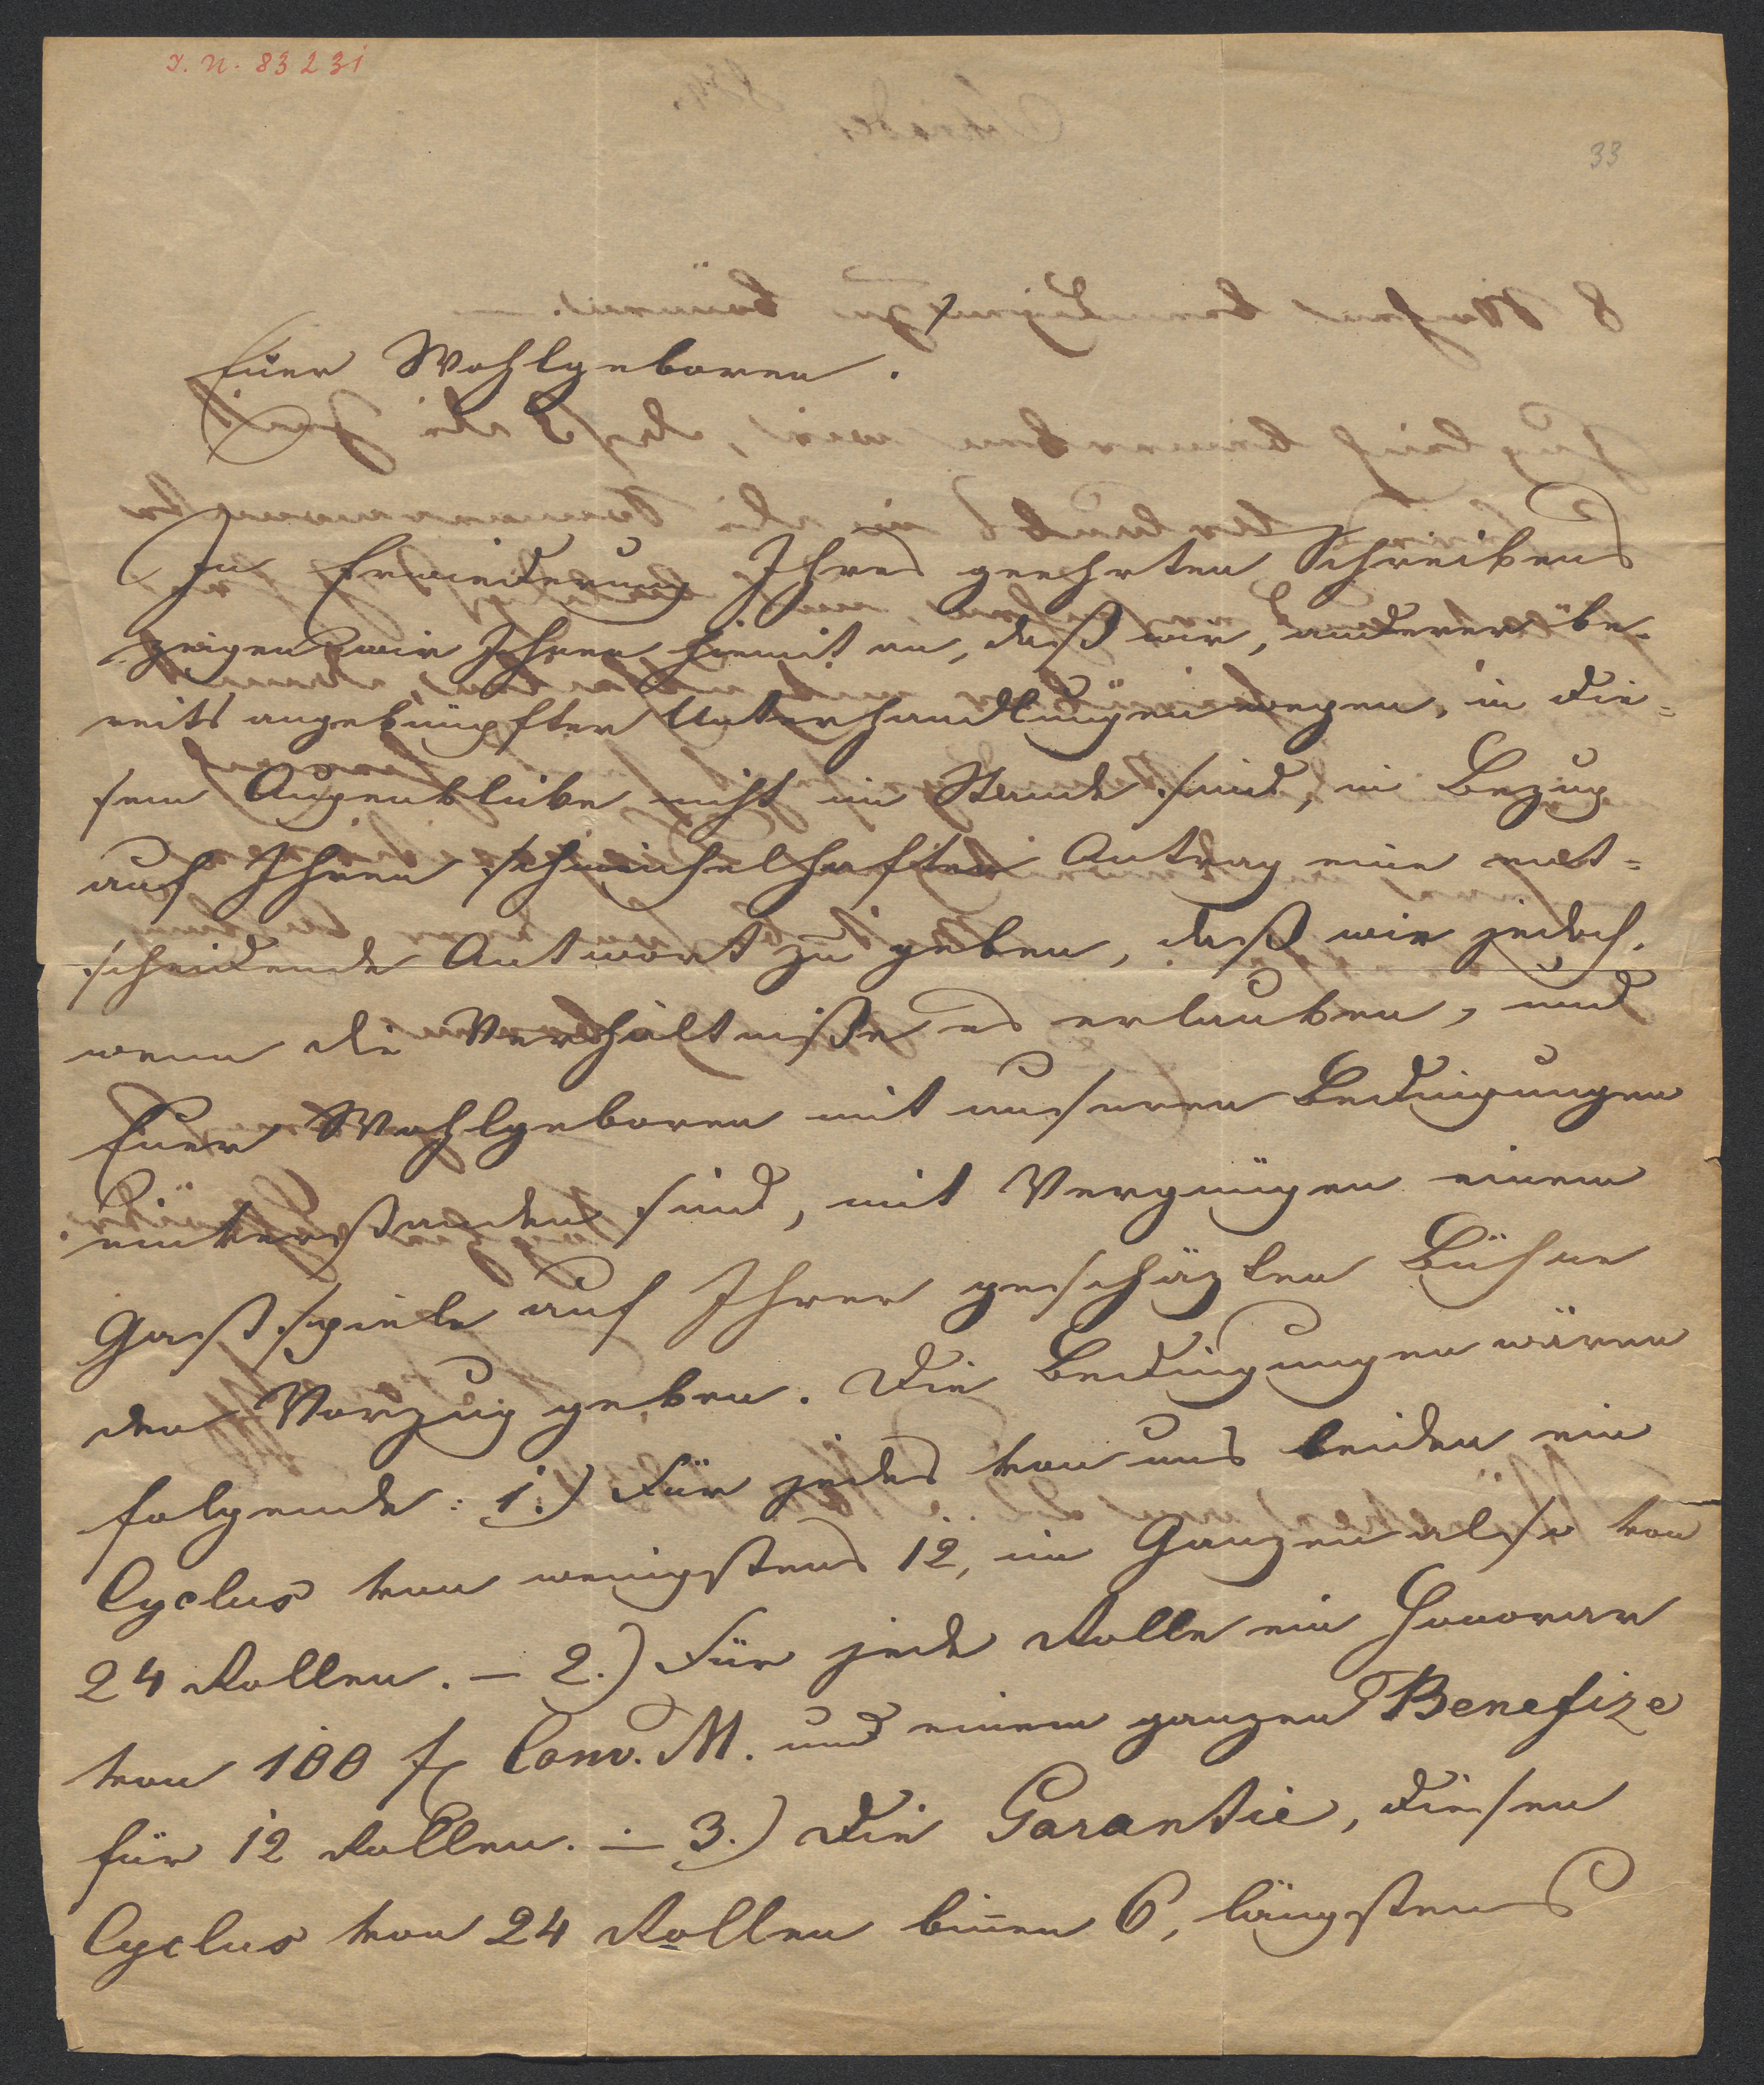 I. N. 83231
33
Euer Wohlgeboren.
In Erwiederung Ihres geehrten Schreibens
zeigen wir Ihnen hiemit an, daß wir, anderer be-
reits angeknüpfter Unterhandlungen wegen, in die=
sem Augenblicke nicht im Stande sind, in Bezug
auf Ihren schmeichelhaften Antrag eine ent=
scheidende Antwort zu geben, daß wir jedoch,
wenn die Verhältniße es erlauben, und
Euer Wohlgeboren mit unseren Bedingungen
einverstanden sind, mit Vergnügen einem
Gastspiele auf Ihrer geschäzten Bühne
den Vorzug geben. Die Bedingungen wären
folgende: 1.) Für jedes von uns beiden ein
Cyclus von wenigstens 12, im Ganzen also von
24 Rollen. – 2.) Für jede Rolle ein Honorar
von 100 f Conv. M. und einem ganzen Benefize
für 12 Rollen. – 3.) Die Garantie, diesen
Cyclus von 24 Rollen binnen 6, längstens